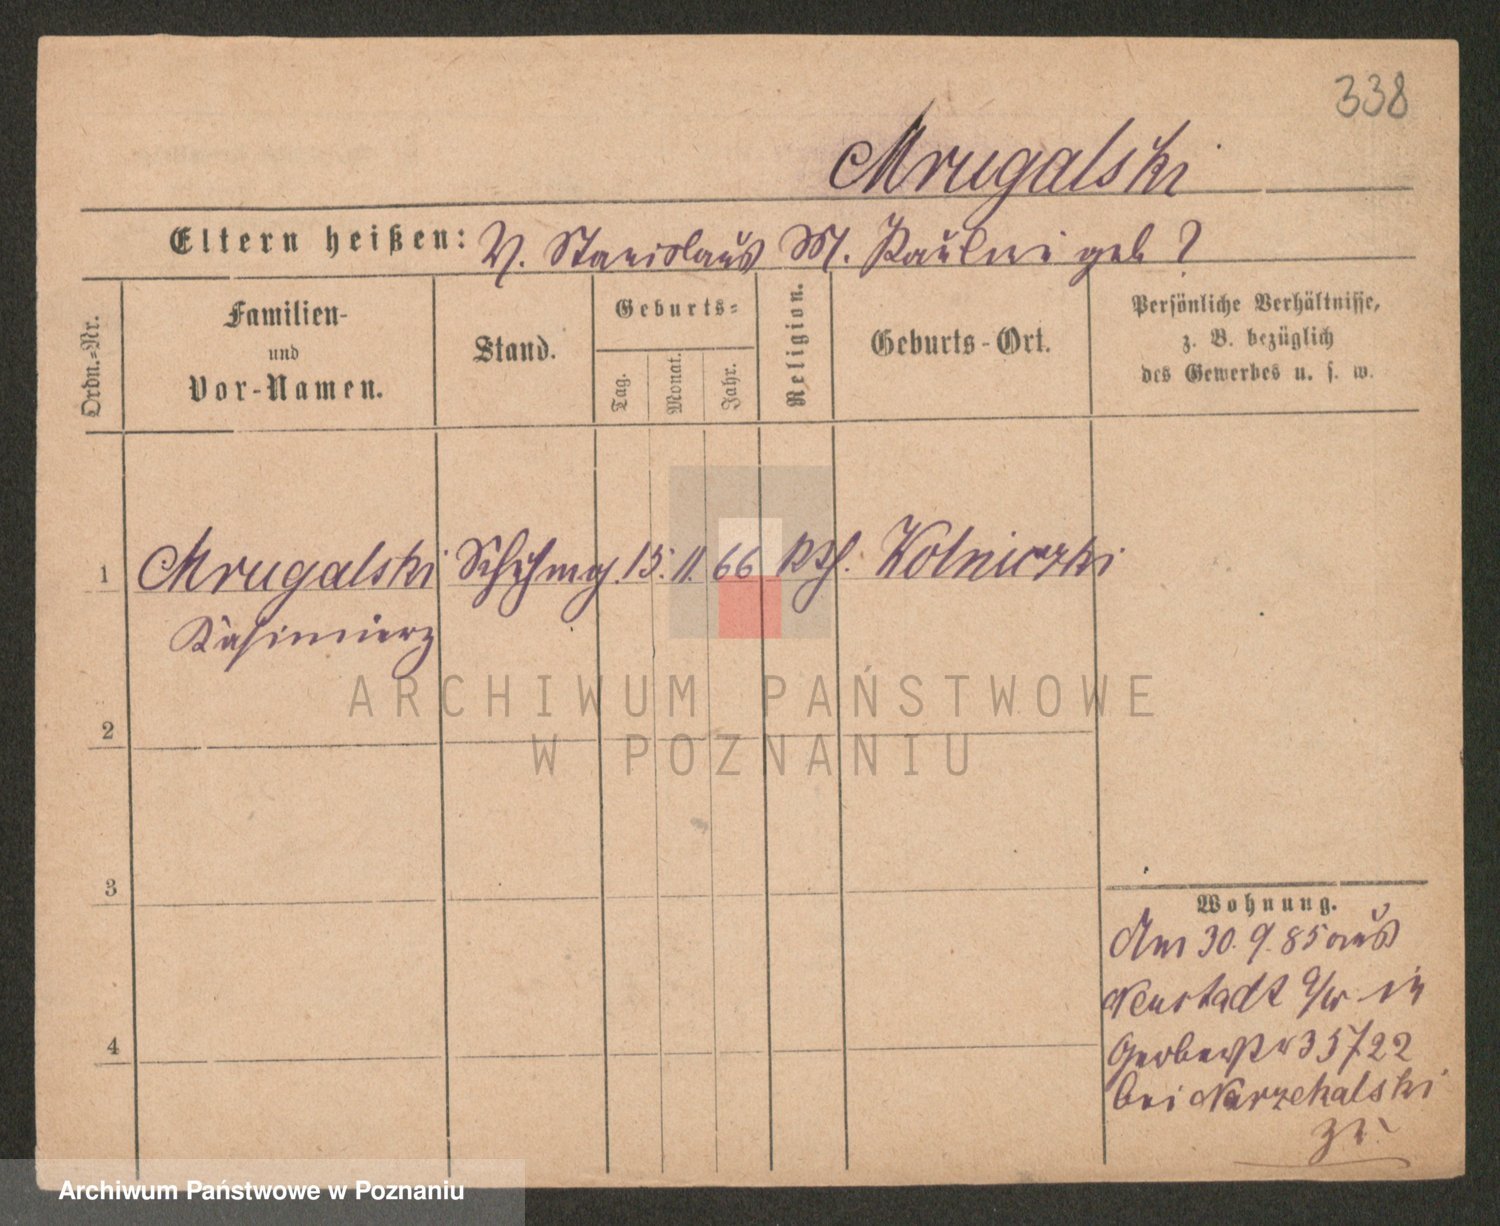 338
Mrugalski
Eltern heißen: V. Stanislaus M. Pauline geb ?
Ordn.=Nr.
Familien-
und
Vor-Namen.
Stand.
Geburts=
Tag.
Monat.
Jahr.
Religion.
Geburts-Ort.
Persönliche Verhältnisse,
z. B. bezüglich
des Gewerbes u. s. w.
1 Mrugalski Schuhmg. 15. 11. 66 kth. Kolniczki
Kasimierz
2
3
4
Wohnung.
Am 30. 9. 85 aus
Neustadt a/w in
Gerberstr 35/22
bei Narzekalski
zu
ARCHIWUM PAŃSTWOWE
W POZNANIU
Archiwum Państwowe w Poznaniu